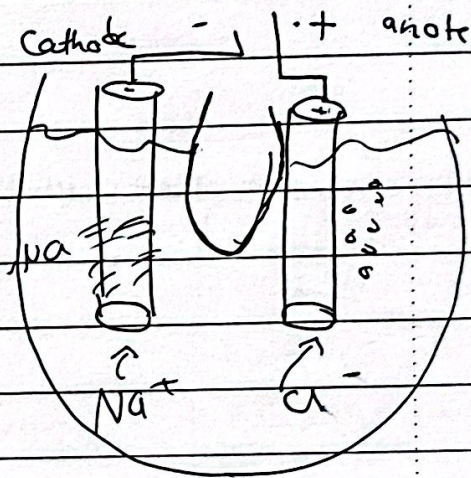 Cathode - . + anote
-
+
Na
Na⁺ Cl⁻